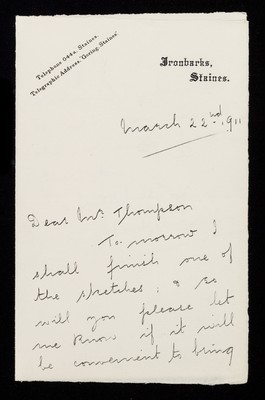 Telephone 044, Staines.
Telegraphic Address, "Goring, Staines"
Ironbarks,
Staines.
March 22nd 1911
Dear Mr. Thompson
To-morrow I
shall finish one of
the sketches: & so
will you please let
me know if it will
be convenient to bring